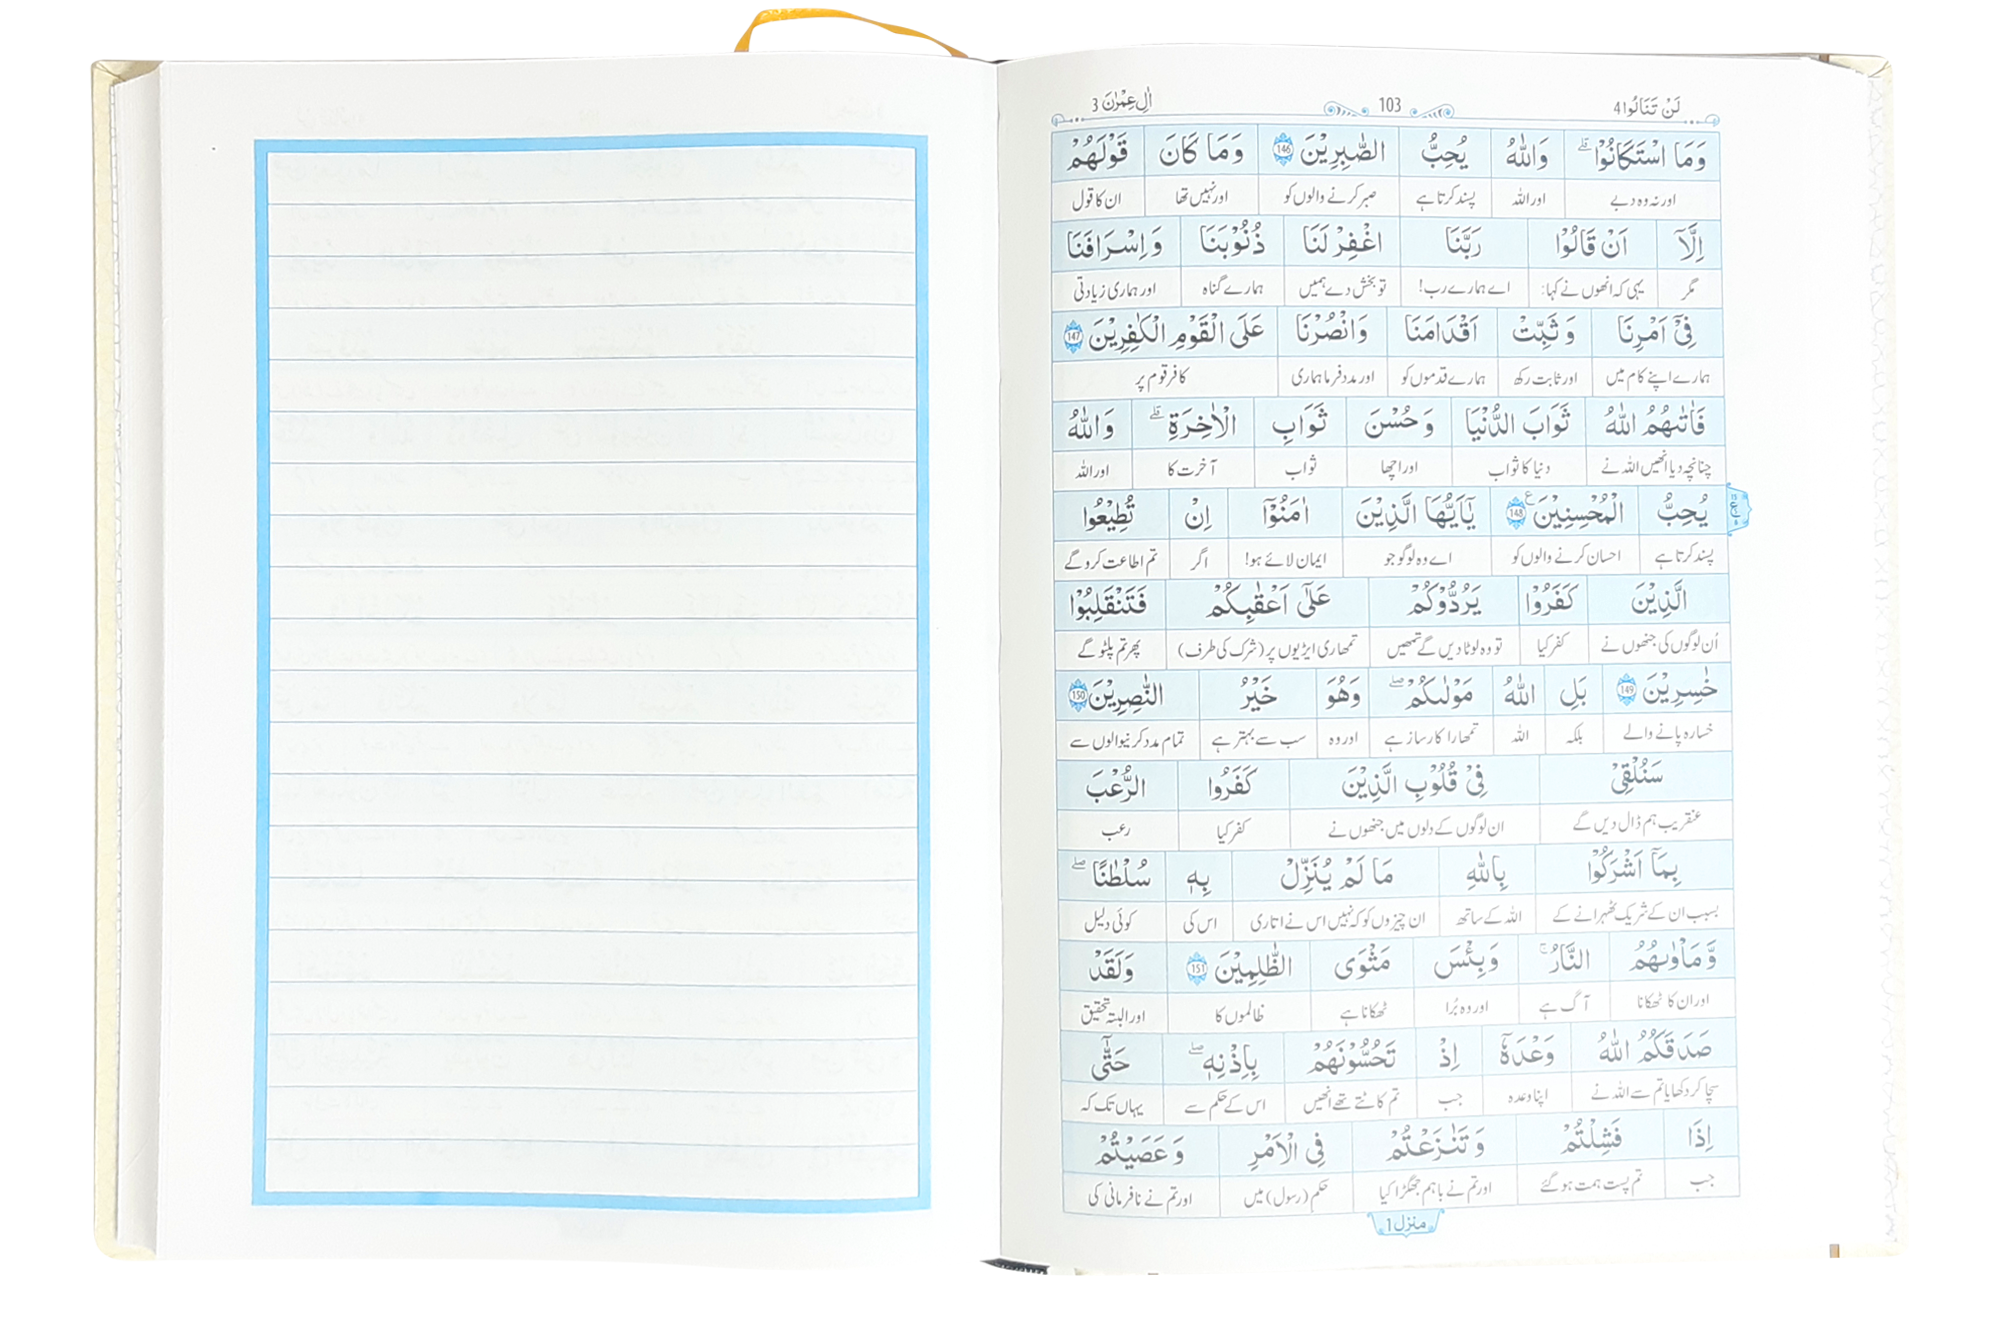 لَنْ تَنَالُوا 4 103 اٰلِ عِمْرٰن 3
وَمَا اسْتَكَانُوْا ۗ وَاللّٰهُ يُحِبُّ الصّٰبِرِيْنَ 146 وَمَا كَانَ قَوْلَهُمْ
اور نہ وہ دبے اور اللہ پسند کرتا ہے صبر کرنے والوں کو اور نہیں تھا ان کا قول
اِلَّآ اَنْ قَالُوْا رَبَّنَا اغْفِرْ لَنَا ذُنُوْبَنَا وَاِسْرَافَنَا
مگر یہی کہ انھوں نے کہا: اے ہمارے رب! تو بخش دے ہمیں ہمارے گناہ اور ہماری زیادتی
فِيْٓ اَمْرِنَا وَثَبِّتْ اَقْدَامَنَا وَانْصُرْنَا عَلَى الْقَوْمِ الْكٰفِرِيْنَ 147
ہمارے اپنے کام میں اور ثابت رکھ ہمارے قدموں کو اور مدد فرما ہماری کافر قوم پر
فَاٰتٰىهُمُ اللّٰهُ ثَوَابَ الدُّنْيَا وَحُسْنَ ثَوَابِ الْاٰخِرَةِ ۗ وَاللّٰهُ
چنانچہ دیا انھیں اللہ نے دنیا کا ثواب اور اچھا ثواب آخرت کا اور اللہ
يُحِبُّ الْمُحْسِنِيْنَ ع 148 يٰٓاَيُّهَا الَّذِيْنَ اٰمَنُوْٓا اِنْ تُطِيْعُوا
پسند کرتا ہے احسان کرنے والوں کو اے وہ لوگو جو ایمان لائے ہو! اگر تم اطاعت کرو گے
الَّذِيْنَ كَفَرُوْا يَرُدُّوْكُمْ عَلٰٓى اَعْقَابِكُمْ فَتَنْقَلِبُوْا
اُن لوگوں کی جنھوں نے کفر کیا تو وہ لوٹا دیں گے تمھیں تمھاری ایڑیوں پر (شرک کی طرف) پھر تم پلٹو گے
خٰسِرِيْنَ 149 بَلِ اللّٰهُ مَوْلٰىكُمْ ۖ وَهُوَ خَيْرُ النّٰصِرِيْنَ 150
خسارہ پانے والے بلکہ اللہ تمھارا کارساز ہے اور وہ سب سے بہتر ہے تمام مدد کرنیوالوں سے
سَنُلْقِيْ فِيْ قُلُوْبِ الَّذِيْنَ كَفَرُوا الرُّعْبَ
عنقریب ہم ڈال دیں گے ان لوگوں کے دلوں میں جنھوں نے کفر کیا رعب
بِمَآ اَشْرَكُوْا بِاللّٰهِ مَا لَمْ يُنَزِّلْ بِهٖ سُلْطٰنًا ۖ
بسبب ان کے شریک ٹھہرانے کے اللہ کے ساتھ ان چیزوں کو کہ نہیں اس نے اتاری اس کی کوئی دلیل
وَّمَاْوٰىهُمُ النَّارُ ۚ وَبِئْسَ مَثْوَى الظّٰلِمِيْنَ 151 وَلَقَدْ
اور ان کا ٹھکانا آگ ہے اور وہ بُرا ٹھکانا ہے ظالموں کا اور البتہ تحقیق
صَدَقَكُمُ اللّٰهُ وَعْدَهٗٓ اِذْ تَحُسُّوْنَهُمْ بِاِذْنِهٖ ۖ حَتّٰٓى
سچا کر دکھایا تم سے اللہ نے اپنا وعدہ جب تم کاٹتے تھے انھیں اس کے حکم سے یہاں تک کہ
اِذَا فَشِلْتُمْ وَتَنٰزَعْتُمْ فِي الْاَمْرِ وَعَصَيْتُمْ
جب تم پست ہمت ہو گئے اور تم نے باہم جھگڑا کیا حکم (رسول) میں اور تم نے نافرمانی کی
منزل 1